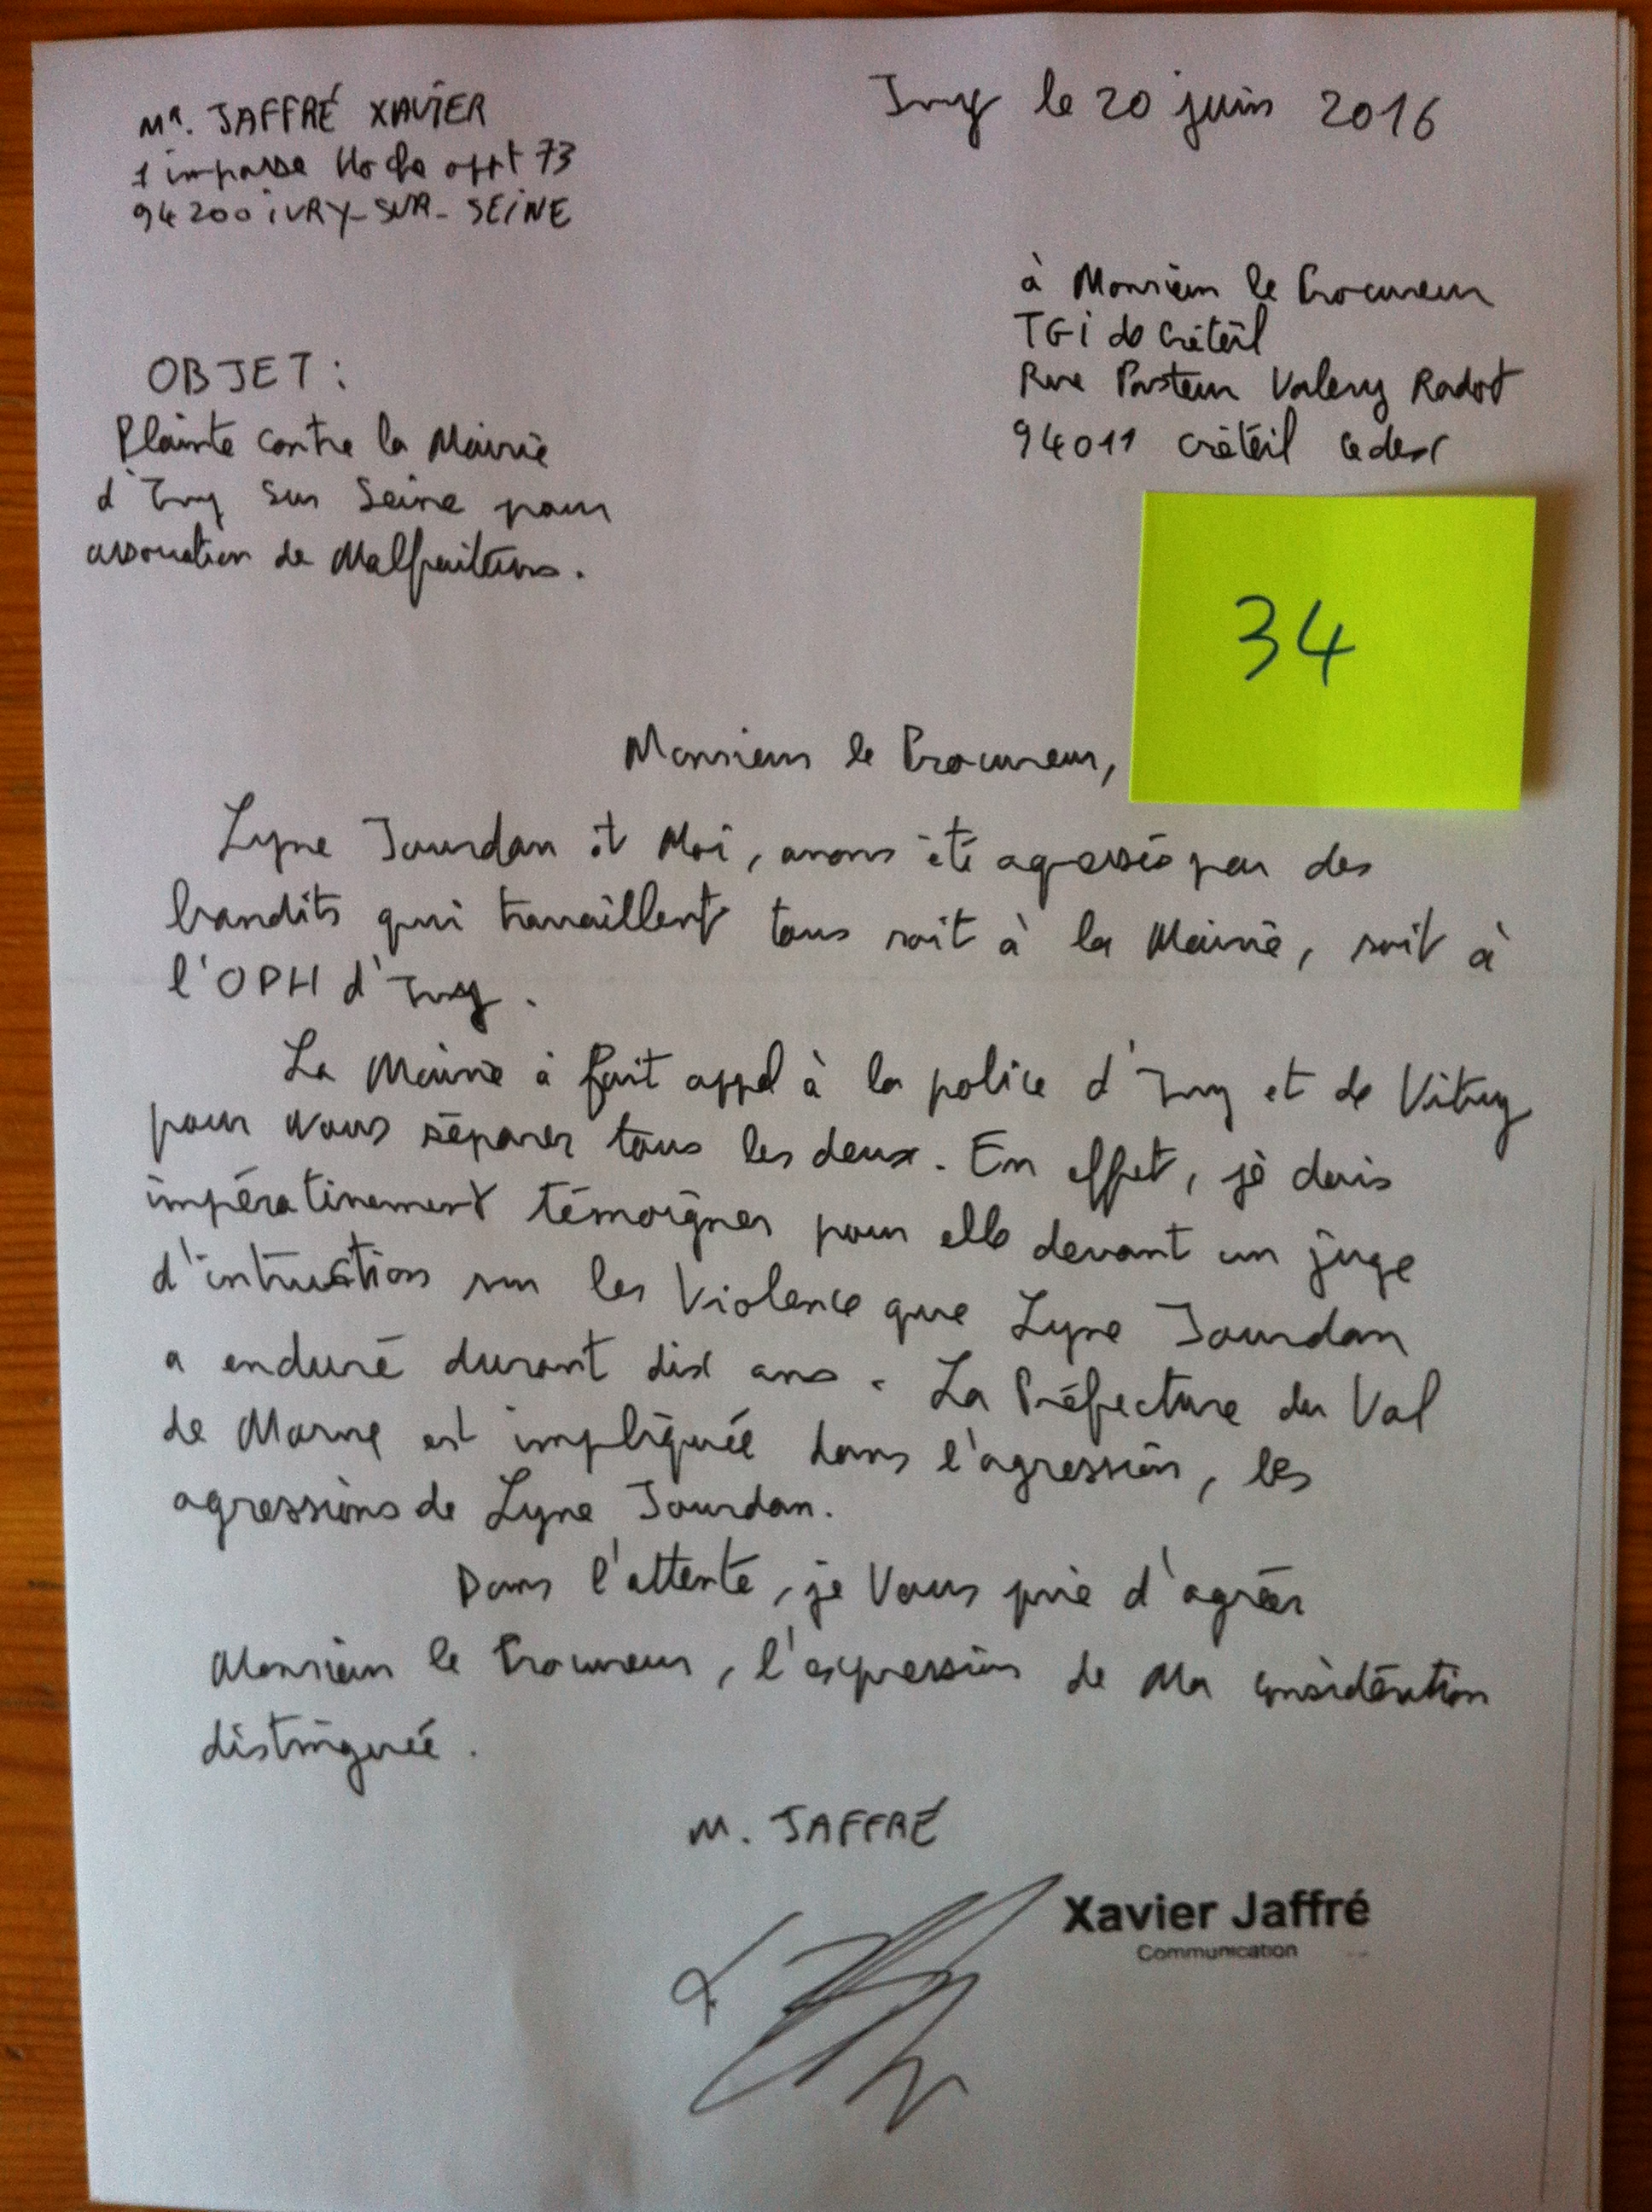 Mr. JAFFRÉ XAVIER
1 impasse Hoche appt 73
94200 iVRY-SUR-SEiNE
Ivry le 20 juin 2016
à Monsieur le Procureur
TGi de Créteil
Rue Pasteur Valery Radot
94011 Créteil Cedex
OBJET :
Plainte contre la Mairie
d'Ivry sur Seine pour
association de Malfaiteurs.
34
Monsieur le Procureur,
Lyne Jourdan et Moi, avons été agressés par des
bandits qui travaillent tous soit à la Mairie, soit à
l'OPH d'Ivry.
La Mairie à fait appel à la police d'Ivry et de Vitry
pour nous séparer tous les deux. En effet, je dois
impérativement témoigner pour elle devant un juge
d'intruction sur les Violence que Lyne Jourdan
a enduré durant dix ans. La Préfecture du Val
de Marne est impliquée dans l'agression, les
agressions de Lyne Jourdan.
Dans l'attente, je Vous prie d'agréer
Monsieur le Procureur, l'expression de Ma considération
distinguée.
M. JAFFRÉ
Xavier Jaffré
Communication